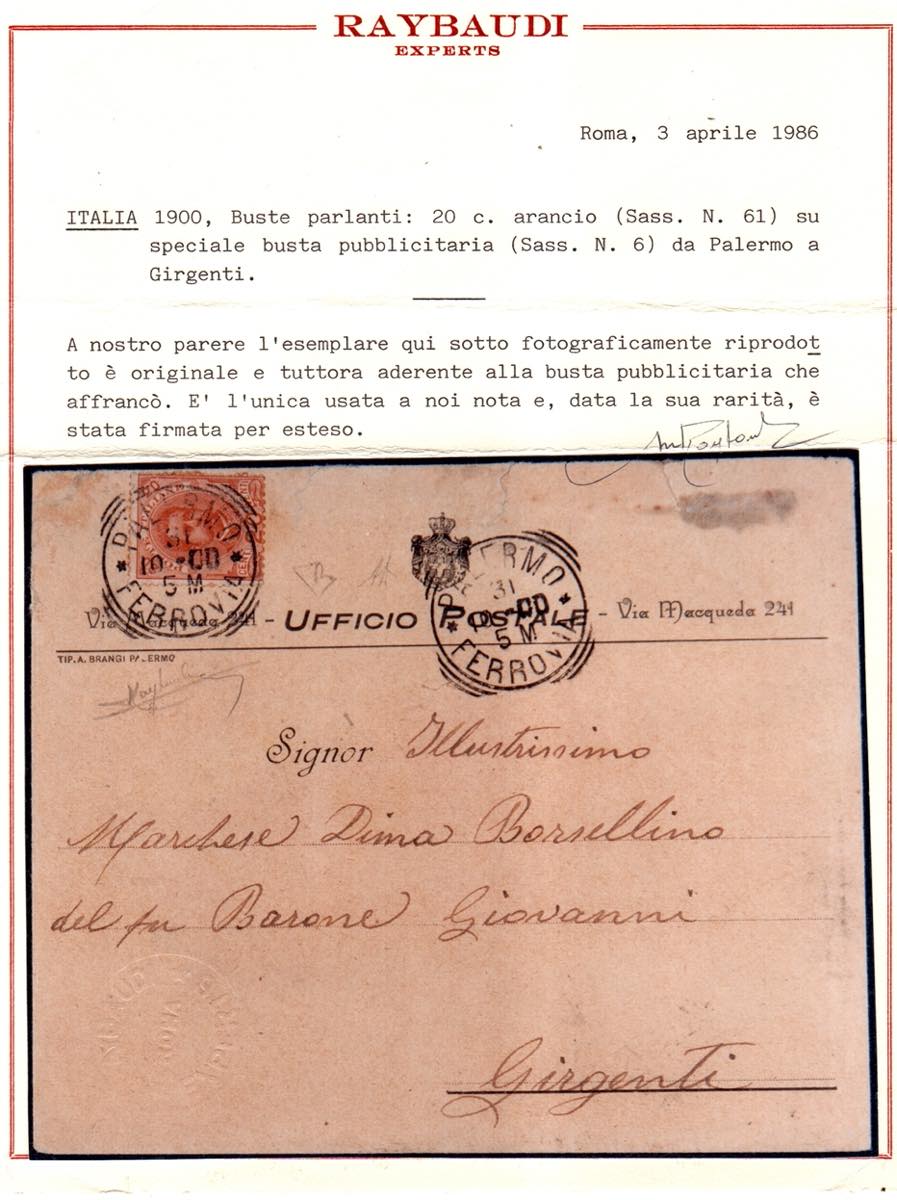 RAYBAUDI
EXPERTS
Roma, 3 aprile 1986
ITALIA 1900, Buste parlanti: 20 c. arancio (Sass. N. 61) su
speciale busta pubblicitaria (Sass. N. 6) da Palermo a
Girgenti.
A nostro parere l'esemplare qui sotto fotograficamente riprodot
to è originale e tuttora aderente alla busta pubblicitaria che
affrancò. E' l'unica usata a noi nota e, data la sua rarità, è
stata firmata per esteso.
PALERMO
31
10 - 00
5 M
FERROVIA
PALERMO
31
10 - 00
5 M
FERROVIA
Via Macqueda 241 - UFFICIO POSTALE - Via Macqueda 241
TIP. A. BRANGI PALERMO
Signor Illustrissimo
Marchese Dima Borsellino
del fu Barone Giovanni
Girgenti